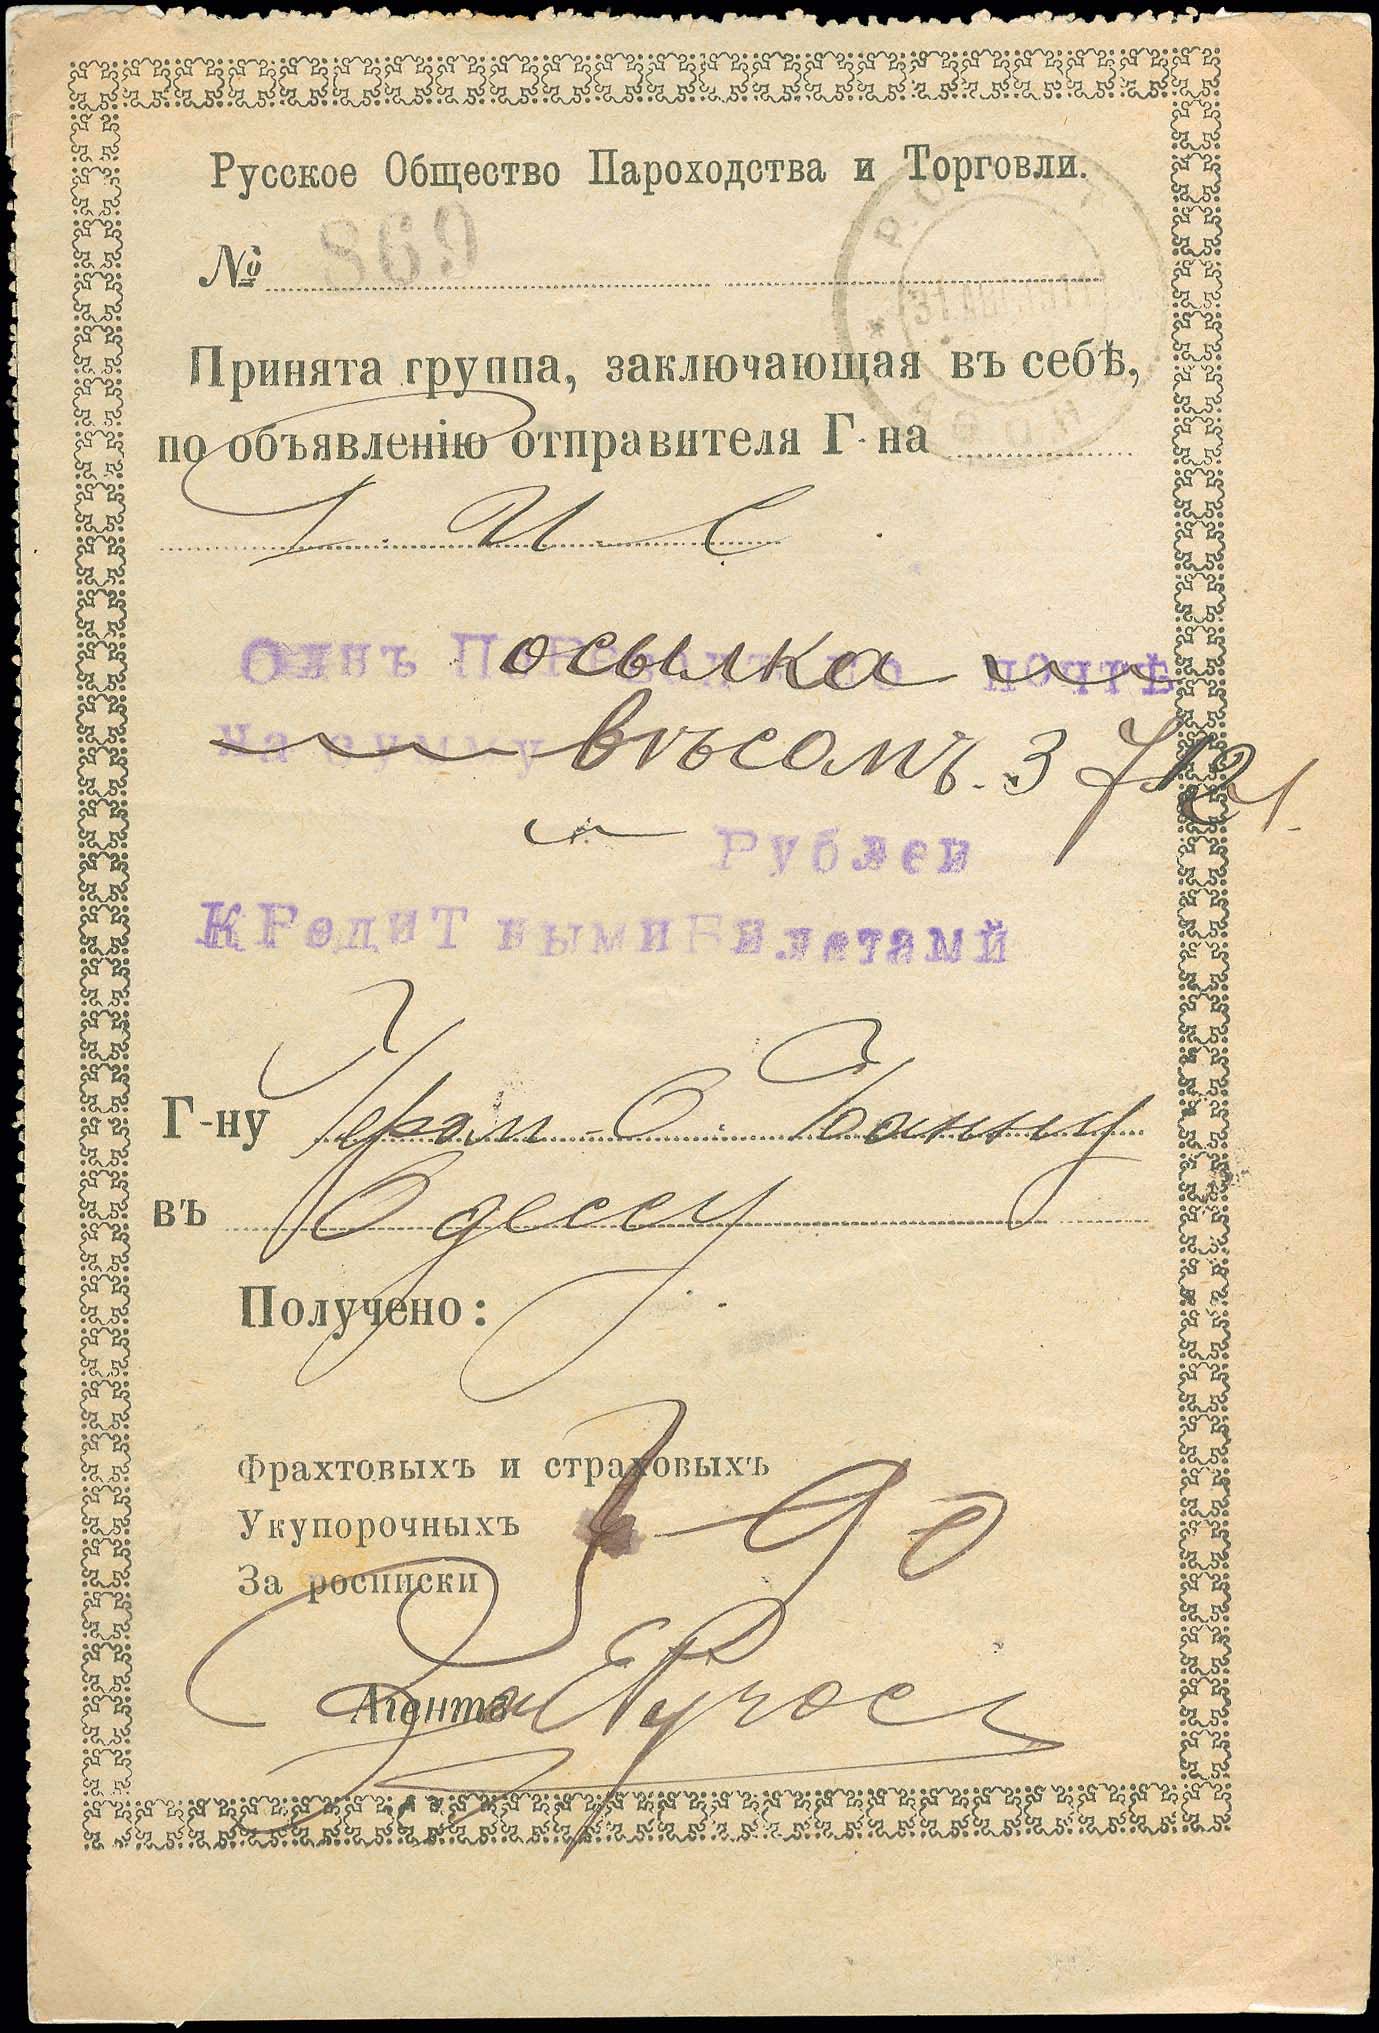 Русское Общество Пароходства и Торговли.
№ 869
Р.О.П.иТ.
31 АВГ
Принята группа, заключающая въ себѣ,
по объявленію отправителя Г-на
И. С.
Одинъ По Переводъ по почтѣ
осылка
на сумму
вѣсомъ. 3
Рублей
КРедиТ выми Билетами
Г-ну О. Банку
въ Одессу
Получено:
Фрахтовыхъ и страховыхъ
Укупорочныхъ 3-90
За росписки
Агентъ